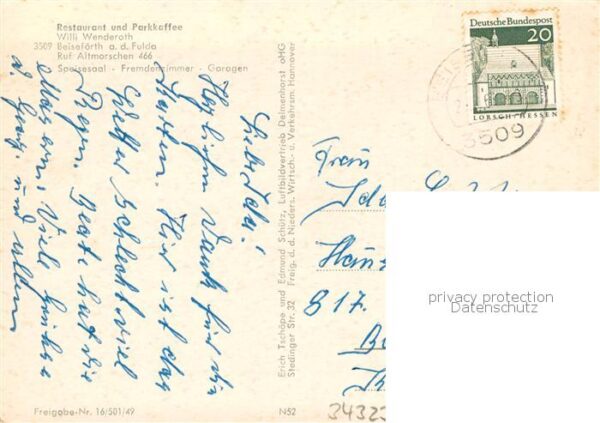 Restaurant und Parkkaffee
Willi Wenderoth
3509 Beiseförth a. d. Fulda
Ruf Altmorschen 466
Speisesaal - Fremdenzimmer - Garagen
Liebe Ida!
Herzlichen Dank für die
Karten. Hier ist das
Wetter schlecht viel
Regen. Heute hat die
Viele Grüße
und allen
Erich Tschöpe und Edmund Schütz, Luftbildvertrieb Delmenhorst oHG
Stedinger Str. 32 Freig. d. d. Nieders. Wirtsch.- u. Verkehrsm. Hannover
Deutsche Bundespost
20
LORSCH/HESSEN
3509
Frau
Ida
Haus
817.
privacy protection
Datenschutz
Freigabe-Nr. 16/501/49
N52
34323